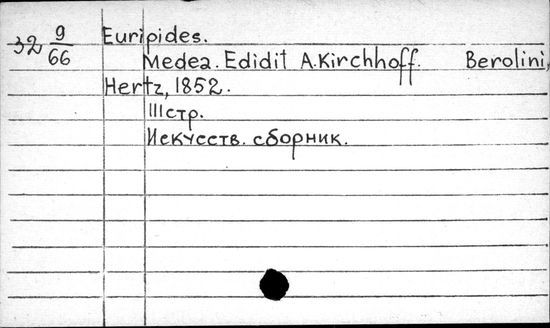 32 9/66
Euripides.
Medea. Edidit A. Kirchhoff. Berolini,
Hertz, 1852.
111 стр.
Искусств. сборник.